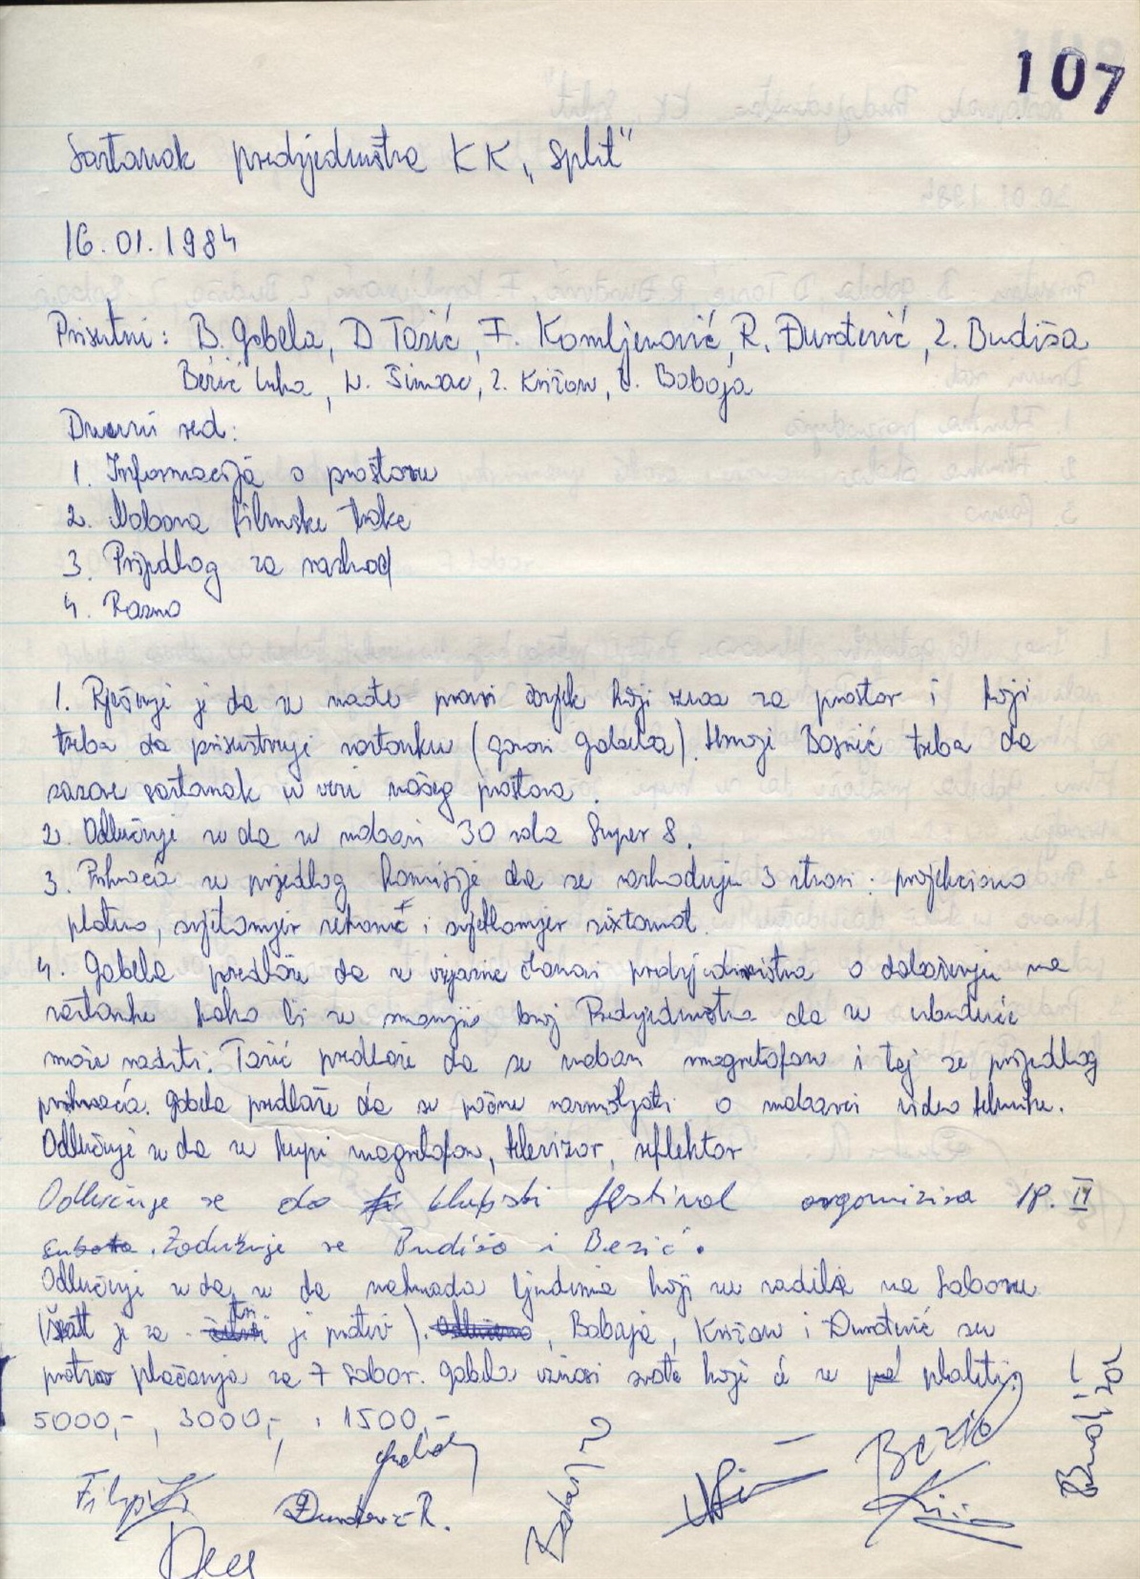 107
Sastanak predsjedništva KK „Split"
16.01.1984
Prisutni: B. Gabela, D Tasić, F. Komljenović, R. Đurđević, Z. Budiša
Bezić Luka, N. Šimac, Z. Križan, Boboja
Dnevni red:
1. Informacija o prostoru
2. Nabava filmske trake
3. Prijedlog za rashod
4. Razno
1. Rješenje je da se nađe pravi čovjek koji zna za prostor i koji
treba da prisustvuje sastanku (govori Gabela). Hrvoje Bosnić treba da
sazove sastanak u vezi našeg prostora.
2. Odlučuje se da se nabavi 30 rola Super 8.
3. Prihvaća se prijedlog komisije da se rashoduju 3 stvari: projekciono
platno, svjetlomjer sekonic i svjetlomjer sixtomat.
4. Gabela predlaže da se izjasne članovi predsjedništva o dolaženju na
sastanke kako bi se smanjio broj Predsjedništva da se ubuduće
može raditi. Tasić predlaže da se nabavi magnetofon i taj se prijedlog
prihvaća. Gabela predlaže da se počne razmišljati o nabavci video tehnike.
Odlučuje se da se kupi magnetofon, televizor, reflektor
Odlučuje se da klupski festival organizira 18. IV
subota. Zadužuje se Budiša i Bezić.
Odlučuje se da se da naknada ljudima koji su radili na Saboru
(je za tri je protiv). Odlučeno, Boboja, Križan i Đurđević su
protiv plaćanja za 7 sabor. Gabela iznosi svote koje će se platiti:
5000,-, 3000,-, 1500,-
Gabela
Đurđević R.
Bezić
Budiša